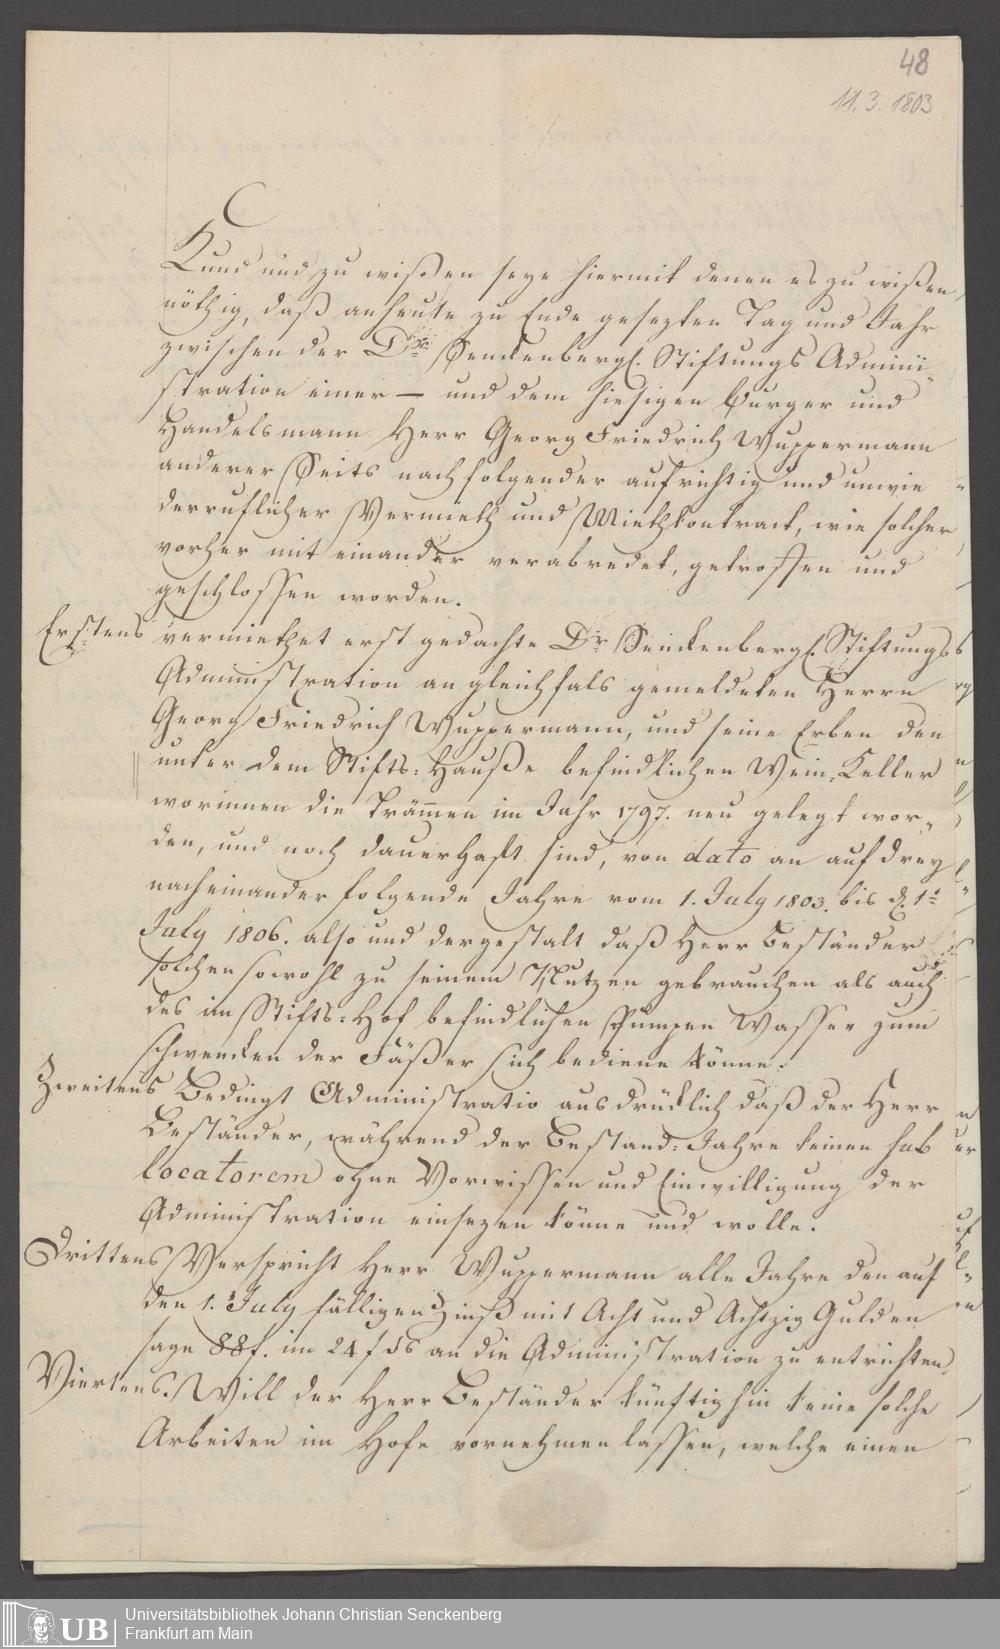 48
11. 3. 1803
Kund und zu wißen seye hiermit denen es zu wißen
nöthig, daß anheute zu Ende gesezten Tag und Jahr
zwischen der Dr. Senckenbergl. Stiftungs Admini„
stration einer — und dem hiesigen Burger und
Handelsmann Herr Georg Friedrich Wuppermann
anderer Seits nachfolgender aufrichtig und unwie„
derruflicher Vermieth und Miethkontrakt, wie solcher
vorher mit einander verabredet, getroffen und
geschlossen worden.
Erstens vermiethet erst gedachte Dr. Senckenbergl. Stiftungs
Administration an gleichfals gemeldeten Herrn
Georg Friedrich Wuppermann, und seine Erben den
unter dem Stifts-Hauße befindlichen Wein-Keller
worinnen die Trämen im Jahr 1797. neu gelegt wor„
den, und noch dauerhaft sind, von dato an auf drey
nacheinander folgende Jahre vom 1. July 1803. bis d. 1n
July 1806. also und dergestalt daß Herr Beständer
solchen sowohl zu seinem Nutzen gebrauchen als auch
des im Stifts-Hof befindlichen Pumpen Wasser zum
schwencken der Fäßer sich bediene könne.
Zweitens Bedingt Administratio ausdrücklich daß der Herr
Beständer, während der Bestand-Jahre keinen sub
locatorem ohne Vorwissen und Einwilligung der
Administration einsezen könne und wolle.
Drittens Verspricht Herr Wuppermann alle Jahre den auf
den 1. July fälligen Zinß mit Acht und Achtzig Gulden
sage 88f. im 24 f ds an die Administration zu entrichten.
Viertens. Will der Herr Beständer künftighin keine solche
Arbeiten im Hofe vornehmen lassen, welche einen
UB
Universitätsbibliothek Johann Christian Senckenberg
Frankfurt am Main